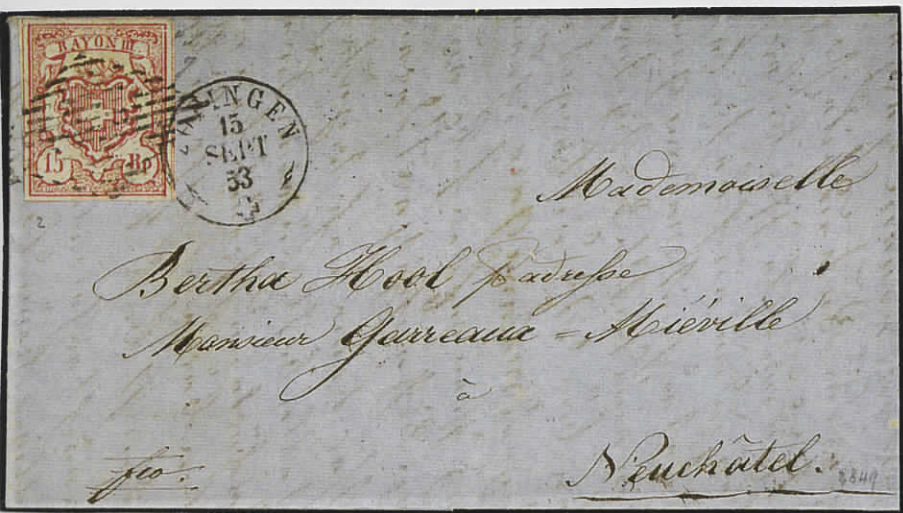 RAYON III
15 Rp
ZOFINGEN
15
SEPT
53
2
Mademoiselle
Bertha Hool p adresse
Monsieur Garreaux = Miéville
à
Neuchâtel.
fco.
8849